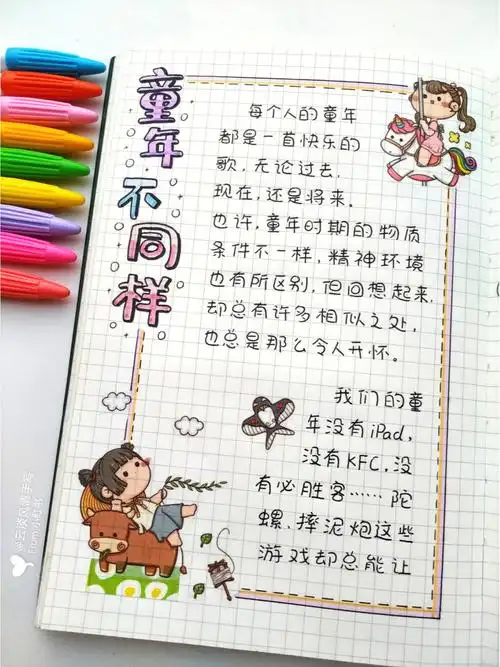 童年不同样
每个人的童年
都是一首快乐的
歌，无论过去，
现在，还是将来。
也许，童年时期的物质
条件不一样，精神环境
也有所区别，但回想起来，
却总有许多相似之处，
也总是那么令人开怀。
我们的童
年没有iPad，
没有KFC，没
有必胜客……陀
螺、摔泥炮这些
游戏却总能让